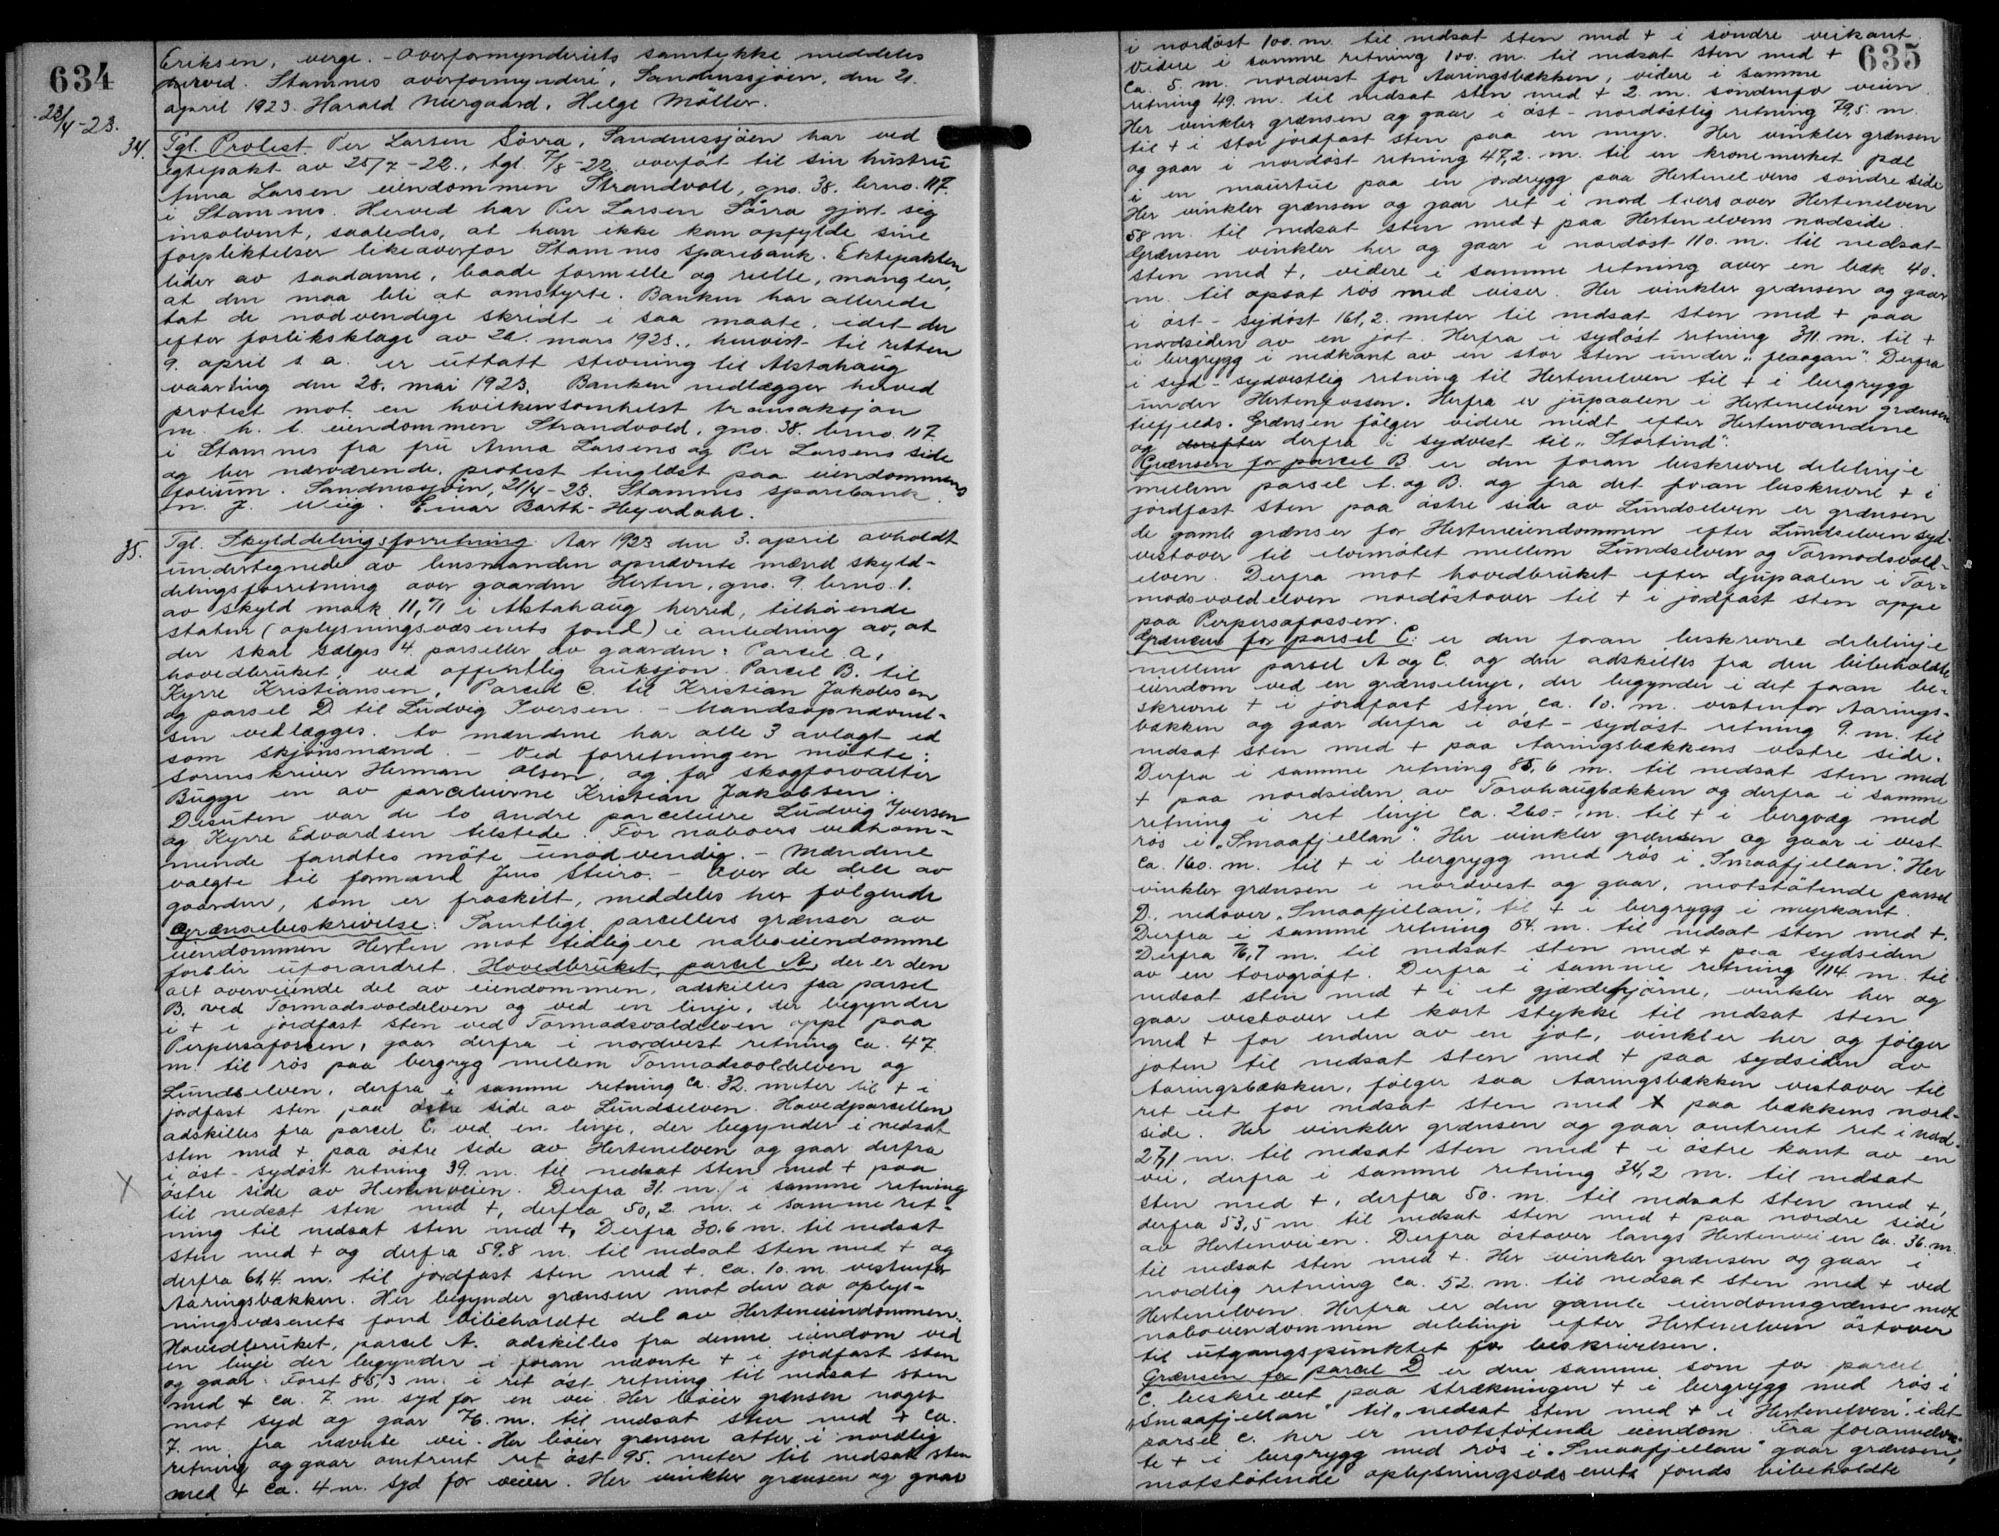 634
Eriksen, verge. - Overformynderiets samtykke meddeles
herved. Stamnes overformynderi, Sandnessjøen, den 21
april 1923. Harald Nergaard, Helge Möller.
23/4-23.
34. Tgl. Protest Per Larsen Sörra, Sandnessjöen har ved
egtepakt av 25/7-22, tgl. 7/8-22 overført til sin hustru
Anna Larsen eiendommen Strandvoll, gno. 38. brno. 117.
i Stamnes. Herved har Per Larsen Sörra gjort sig
insolvent, saaledes, at han ikke kan opfylde sine
forpliktelser likeoverfor Stamnes sparebank. Ektepakten
lider av saadanne, baade formelle og reelle, mangler,
at den maa bli at omstyrte. Banken har allerede
tat de nödvendige skridt i saa maate, idet der
efter forliksklage av 22. mars 1923., henvist til retten
9. april s. a. er uttatt stevning til Alstahaug
vaarting den 28. mai 1923. Banken nedlægger herved
protest mot en hvilkensomhelst transaksjon
m. h. t. eiendommen Strandvold, gno. 38. brno. 117.
i Stamnes fra fru Anna Larsens og Per Larsens side
og ber nærværende protest tinglæst paa eiendommens
folium. Sandnessjöen, 21/4-23. Stamnes sparebank.
m. J. Wiig. Einar Barth-Heyerdahl.
35. Tgl. Skylddelingsforretning. Aar 1923 den 3. april avholdt
undertegnede av lensmanden opnævnte mænd skyld-
delingsforretning over gaarden Herten, gno. 9. brno. 1.
av skyld mark 11,71 i Alstahaug herred, tilhörende
staten (oplysningsvæsenets fond) i anledning av, at
der skal sælges 4. parseller av gaarden: Parcel a,
hovedbruket, ved offentlig auksjon. Parcel B. til
Kyrre Kristiansen, Parcel C. til Kristian Jakobsen
og parsel D til Ludvig Iversen. - Mandsopnævnel-
sen vedlægges. to mændene har alle 3 avlagt ed
som skjönsmænd. - Ved forretningen mötte:
sorenskriver Herman Olsen, og for skogforvalter
Bugge en av parceleierne Kristian Jakobsen.
Desuten var de to andre parceleiere Ludvig Iversen
og Kyrre Edvardsen tilstede. For naboers vedkom-
mende fandtes møte unödvendig. - Mændene
valgte til formand Jens Sturo. - Over de dele av
gaarden, som er fraskilt, meddeles her følgende
Grænsebeskrivelse: Samtlige parcellers grænser av
eiendommen Herten mot tidligere naboeiendomme
forblir uforandret. Hovedbruket, parcel A der er den
alt overveiende del av eiendommen, adskilles fra parsel
B. ved Tormodsvoldelven og ved en linje, der begynder
i + i jordfast sten ved Tormodsvoldelven oppe paa
Perpersafossen, gaar derfra i nordvest retning ca. 47.
m. til rös paa bergryg mellem Tormodsvoldelven og
Lundselven, derfra i samme retning ca. 32. meter til + i
jordfast sten paa östre side av Lundselven. Hovedparcellen
adskilles fra parcel C. ved en linje, der begynder i nedsat
sten med + paa östre side av Hertenelven og gaar derfra
i öst - sydöst retning 39. m. til nedsat sten med + paa
X östre side av Hertenveien. Derfra 31. m. i samme retning
til nedsat sten med +, derfra 50,2. m. i samme ret-
ning til nedsat sten med +, Derfra 30.6 m. til nedsat
sten med + og derfra 59,8 m. til nedsat sten med + og
derfra 61,4. m. til jordfast sten med +. ca. 10. m. vestenfor
Aaringsbækken. Her begynder grænsen mot den av oplys-
ningsvæsenets fond bibeholdte del av Herteneiendommen.
Hovedbruket, parcel A. adskilles fra denne eiendom ved
en linje der begynder i foran nævnte + i jordfast sten
og gaar: Först 85,3 m. i ret öst retning til nedsat sten
med + ca. 7. m. syd for en vei. Her böier grænsen noget
mot syd og gaar 76. m. til nedsat sten med + ca.
7. m. fra nævnte vei. Her böier grænsen atter i nordlig
retning og gaar omtrent ret öst 95. meter til nedsat sten
med + ca. 4 m. syd for veien. Her vinkler grænsen og gaar
635
i nordöst 100. m. til nedsat sten med + i söndre veikant.
Videre i samme retning 100. m. til nedsat sten med +
ca. 5. m. nordvest for Aaringsbækken, videre i samme
retning 49. m. til nedsat sten med + 2. m. söndenfor veien.
Her vinkler grænsen og gaar i öst - nordöstlig retning 79,5. m.
til + i stor jordfast sten paa en myr. Her vinkler grænsen
og gaar i nordöst retning 47,2. m. til en kronemerket pæl
i en maurtue paa en jordrygg paa Hertenelvens söndre side
Her vinkler grænsen og gaar ret i nord tvers over Hertenelven
58 m. til nedsat sten med + paa Hertenelvens nodside.
Grænsen vinkler her og gaar i nordöst 110. m. til nedsat
sten med +, videre i samme retning over en bæk 40.
m. til opsat rös med viser. Her vinkler grænsen og gaar
i öst - sydöst 161,2. meter til nedsat sten med + paa
nordsiden av en jot. Herfra i sydöst retning 311. m. til +
i bergrygg i nedkant av en stor sten under "flaagan". Derfra
i syd - sydvestlig retning til Hertenelven til + i bergrygg
under Hertenfossen. Herfra er jupaalen i Hertenelven grænsen
tilfjelds. Grænsen fölger videre midt efter Hertenvandene
og derefter derfra i sydvest til "Stortind".
Grænsen for parcel B er den foran beskrevne delelinje
mellem parsel A og B. og fra det foran beskrevne + i
jordfast sten paa östre side av Lundselven er grænsen
de gamle grænser for Herteneiendommen efter Lundselven syd-
vestover til elvemötet mellem Lundselven og Tormodsvold-
elven. Derfra mot hovedbruket efter djupaalen i Tor-
modsvoldelven nordöstover til + i jordfast sten oppe
paa Perpersafossen.
Grænsen for parsel C: er den foran beskrevne delelinje
mellem parsel A og C. og den adskilles fra den bibeholdte
eiendom ved en grænselinje, der begynder i det foran be-
skrevne + i jordfast sten ca. 10. m. vestenfor Aarings-
bækken og gaar derfra i öst - sydöst retning 9. m. til
nedsat sten med + paa Aaringsbækkens vestre side.
Derfra i samme retning 85,6 m. til nedsat sten med
+ paa nordsiden av Torvhaugbækken og derfra i samme
retning i ret linje ca. 260.- m. til + i bergvæg med
rös i "Smaafjellan". Her vinkler grænsen og gaar i vest
ca. 160. m. til + i bergrygg med rös i "Smaafjellan". Her
vinkler grænsen i nordvest og gaar, motstötende parsel
D. nedover "Smaafjellan", til + i bergrygg i myrkant.
Derfra i samme retning 54. m. til nedsat sten med +.
Derfra 76,7 m. til nedsat sten med + paa sydsiden
av en torvgröft. Derfra i samme retning 114. m. til
nedsat sten med + i et gjærdehjörne, vinkler her og
gaar vestover et kort stykke til nedsat sten
med + for enden av en jot, vinkler her og fölger
joten til nedsat sten med + paa sydsiden av
Aaringsbækken, fölger saa Aaringsbækken vestover til
ret ut for nedsat sten med X paa bækkens nord-
side. Her vinkler grænsen og gaar omtrent ret i nord.
27,1 m. til nedsat sten med + i östre kant av en
vei, derfra i samme retning 34,2 m. til nedsat
sten med +, derfra 50. m. til nedsat sten med +,
derfra 53,5 m. til nedsat sten med + paa nordre side
av Hertenveien. Derfra östover langs Hertenveien ca. 36. m.
til nedsat sten med +. Her vinkler grænsen og gaar i
nordlig retning ca. 52. m. til nedsat sten med + ved
Hertenelven. Herfra er den gamle eiendomsgrænse mot
naboeiendommen delelinje efter Hertenelven östover
til utgangspunktet for beskrivelsen.
Grænsen for parcel D er den samme som for parcel
C. beskrevet paa strækningen + i bergrygg med rös i
"Smaafjellan" til "nedsat sten med + i Hertenelven". idet
parsel C. her er motstötende eiendom. Fra forannævn-
te + i bergrygg med rös i "Smaafjellan" gaar grænsen,
motstötende oplysningsvæsenets fonds bibeholdte